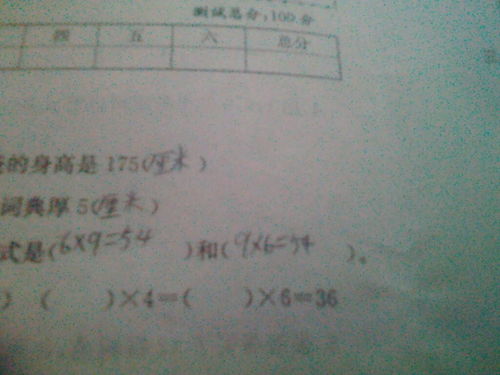 测试总分:100分
四 五 六 总分
的身高是175(厘米)
词典厚5(厘米)
式是(6×9=54 )和(9×6=54 )。
) ( )×4=( )×6=36